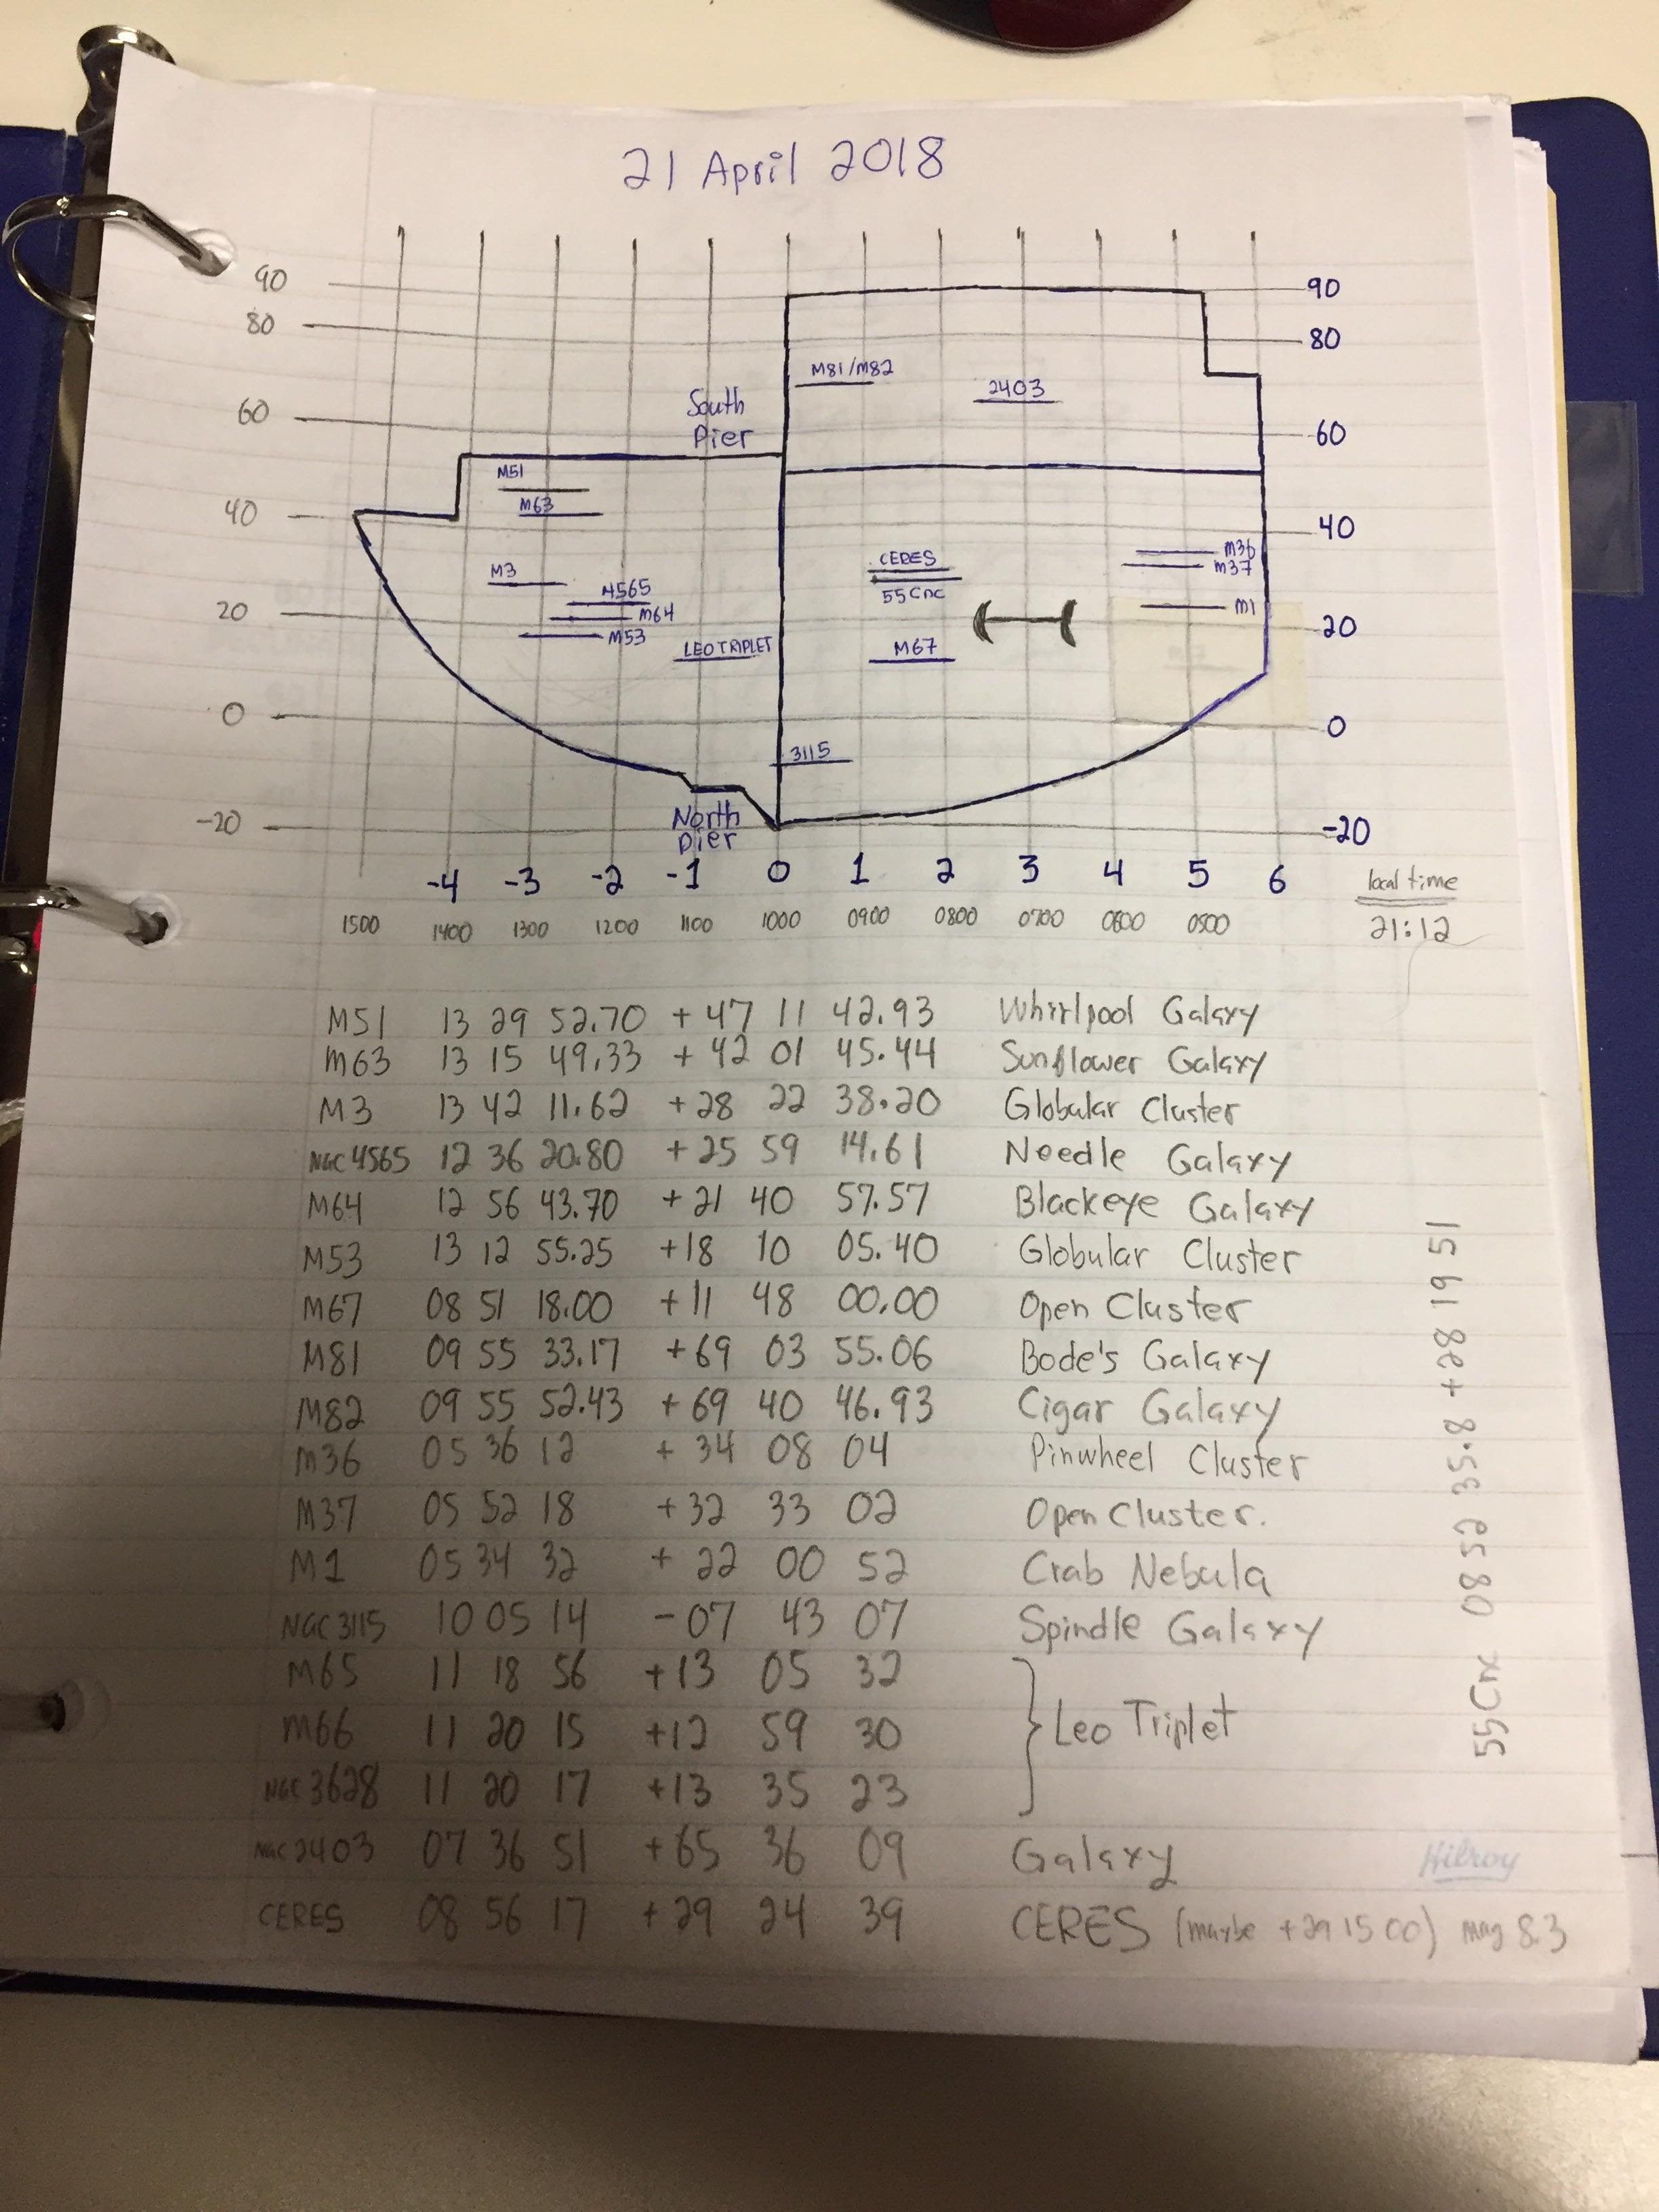 21 April 2018
90 90
80 80
M81/M82
2403
South
Pier
60 60
M51
M63
40 40
CERES
M36
M37
M3
4565
55 Cnc
M64
M1
20 20
M53
LEO TRIPLET
M67
0 0
3115
North
Pier
-20 -20
-4 -3 -2 -1 0 1 2 3 4 5 6 local time
1500 1400 1300 1200 1100 1000 0900 0800 0700 0600 0500 21:12
M51 13 29 52.70 +47 11 42.93 Whirlpool Galaxy
M63 13 15 49.33 +42 01 45.44 Sunflower Galaxy
M3 13 42 11.62 +28 22 38.20 Globular Cluster
NGC 4565 12 36 20.80 +25 59 14.61 Needle Galaxy
M64 12 56 43.70 +21 40 57.57 Blackeye Galaxy
M53 13 12 55.25 +18 10 05.40 Globular Cluster
M67 08 51 18.00 +11 48 00.00 Open Cluster
M81 09 55 33.17 +69 03 55.06 Bode's Galaxy
M82 09 55 52.43 +69 40 46.93 Cigar Galaxy
M36 05 36 12 +34 08 04 Pinwheel Cluster
M37 05 52 18 +32 33 02 Open Cluster.
M1 05 34 32 +22 00 52 Crab Nebula
NGC 3115 10 05 14 -07 43 07 Spindle Galaxy
M65 11 18 56 +13 05 32
M66 11 20 15 +12 59 30 Leo Triplet
NGC 3628 11 20 17 +13 35 23
NGC 2403 07 36 51 +65 36 09 Galaxy
CERES 08 56 17 +29 24 39 CERES (maybe +29 15 00) mag 8.3
55 Cnc 08 52 35.8 +28 19 51
Hilroy